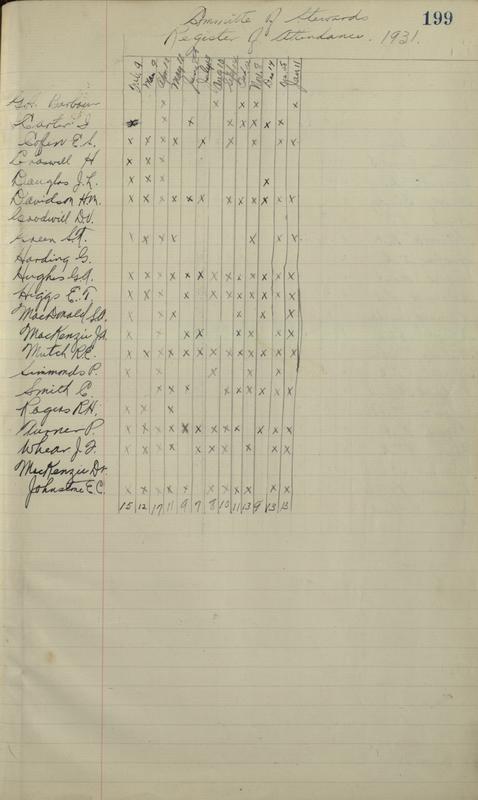 199
Committee of Stewards
Register of Attendance. 1931.
Feb. 9 Mar. 9 May 11 Aug 10 Nov. 9 Dec 14 Jan 11
Geo. Barbour x x x x x
Carter x x x x x x x
Coffin E.S. x x x x x x x x x
Craswell H x x x
Douglas J.L. x x x x
Davidson H.M. x x x x x x x x x x x x
Goodwill Dv.
Green x x x x x x x
Harding G.
Hughes x x x x x x x x x x x x
Higgs E.T. x x x x x x x x x x x
MacDonald x x x x x x
MacKenzie x x x x x x x
Mutch R.C. x x x x x x x x x x x x x
Simmonds P. x x x x
Smith C. x x x x x x x x
Rogers R.H. x x x
Turner P. x x x x x x x x x x x
Whear J.F. x x x x x x x x x x
MacKenzie Dr.
Johnstone E.C. x x x x x x x x x x
15 12 17 11 9 9 8 10 11 13 9 13 13